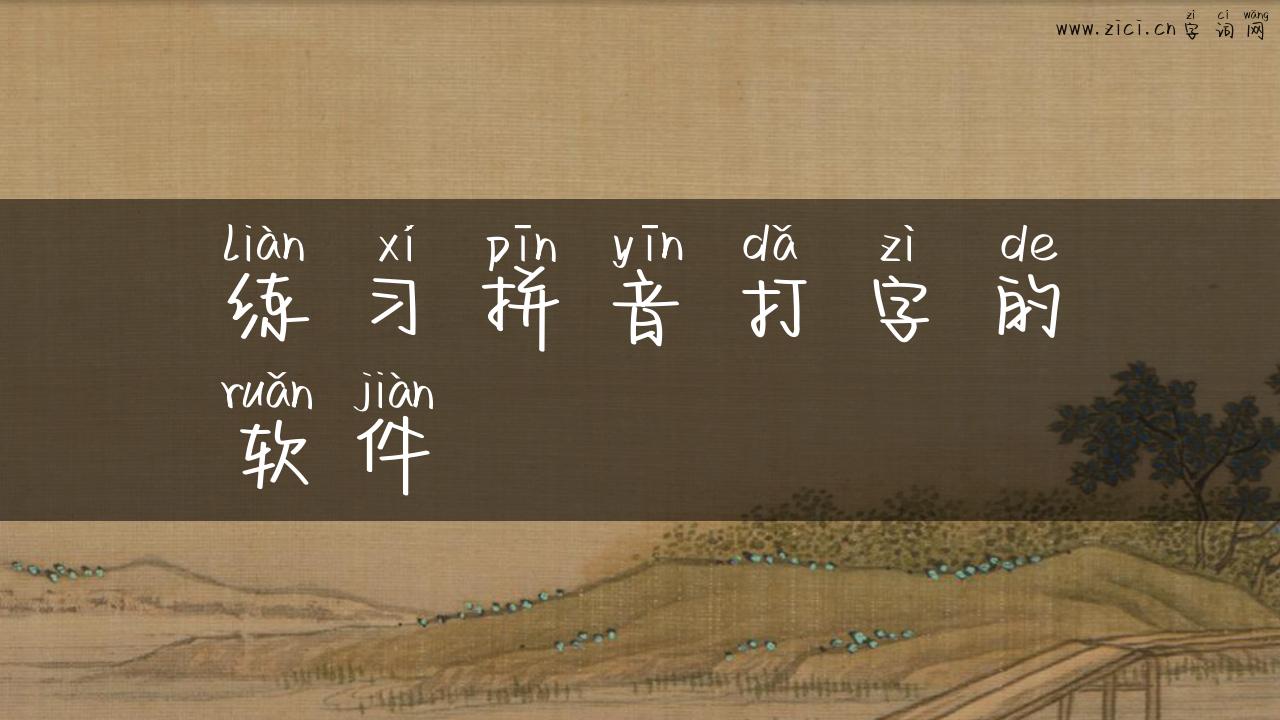 zì cí wǎng
www.zici.cn字词网
liàn xí pīn yīn dǎ zì de
练习拼音打字的
ruǎn jiàn
软件